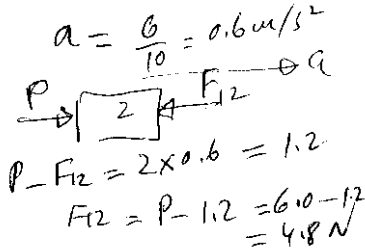 a = 6/10 = 0.6 m/s²
a
P F12
2
P - F12 = 2×0.6 = 1.2
F12 = P - 1.2 = 6.0 - 1.2
= 4.8 N